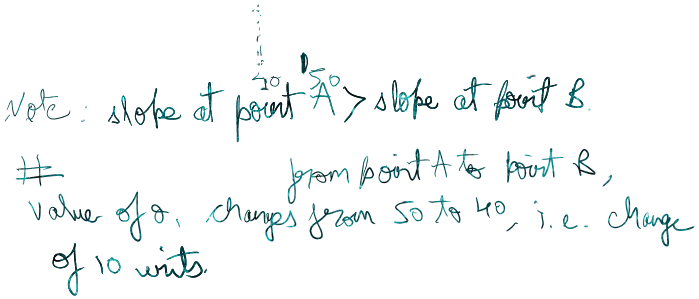 40 50
Note: slope at point A > slope at point B.
# from point A to point B,
value of θ, changes from 50 to 40, i.e. change
of 10 units.